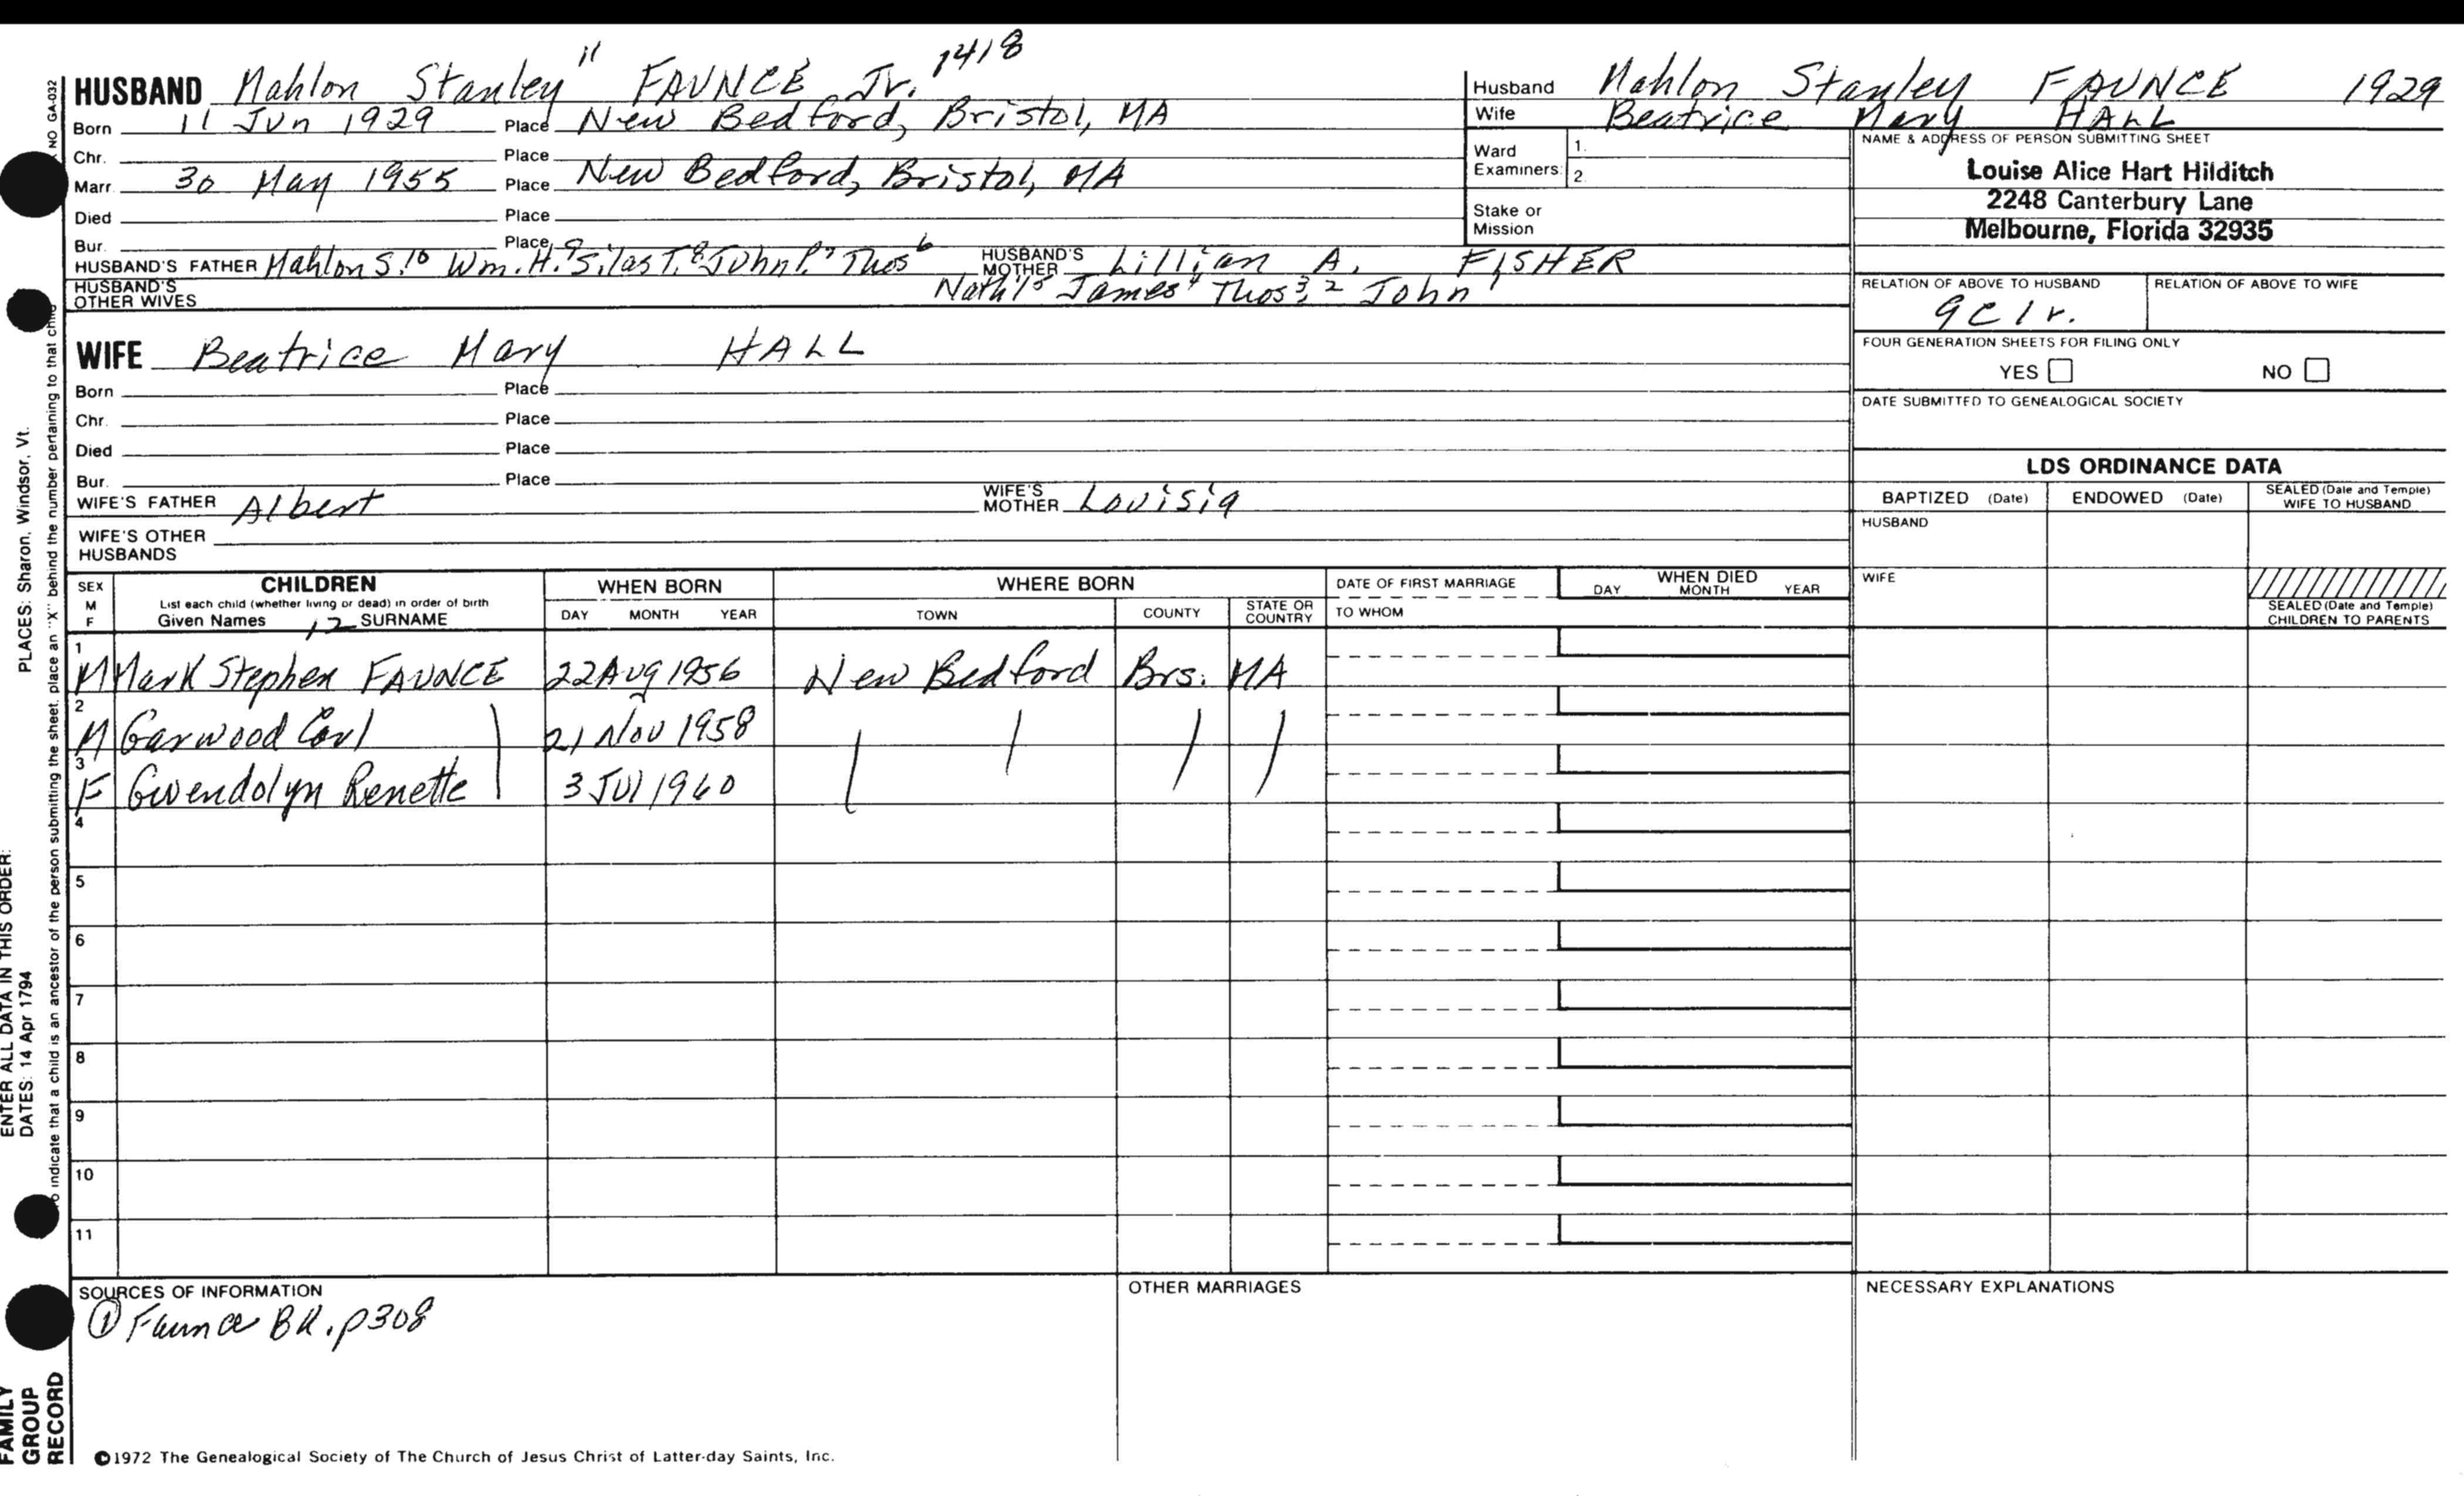 HUSBAND Mahlon Stanley 11 FAUNCE Jr. 1418
Born 11 Jun 1929 Place New Bedford, Bristol, MA
Chr. Place
Marr. 30 May 1955 Place New Bedford, Bristol, MA
Died Place
Bur. Place
HUSBAND'S FATHER Mahlon S.10 Wm. H.9 Silas T.8 John P.7 Thos6 HUSBAND'S MOTHER Lillian A. FISHER
HUSBAND'S OTHER WIVES Nath'l5 James4 Thos3,2 John1
WIFE Beatrice Mary HALL
Born Place
Chr. Place
Died Place
Bur. Place
WIFE'S FATHER Albert WIFE'S MOTHER Louisia
WIFE'S OTHER HUSBANDS
Husband Mahlon Stanley FAUNCE 1929
Wife Beatrice Mary HALL
Ward Examiners: 1. 2.
Stake or Mission
NAME & ADDRESS OF PERSON SUBMITTING SHEET
Louise Alice Hart Hilditch
2248 Canterbury Lane
Melbourne, Florida 32935
RELATION OF ABOVE TO HUSBAND RELATION OF ABOVE TO WIFE
9C1r.
FOUR GENERATION SHEETS FOR FILING ONLY
YES NO
DATE SUBMITTED TO GENEALOGICAL SOCIETY
LDS ORDINANCE DATA
BAPTIZED (Date) ENDOWED (Date) SEALED (Date and Temple) WIFE TO HUSBAND
HUSBAND
WIFE
SEALED (Date and Temple) CHILDREN TO PARENTS
SEX M F CHILDREN WHEN BORN WHERE BORN DATE OF FIRST MARRIAGE WHEN DIED
List each child (whether living or dead) in order of birth
Given Names 12 SURNAME DAY MONTH YEAR TOWN COUNTY STATE OR COUNTRY TO WHOM DAY MONTH YEAR
1 M Mark Stephen FAUNCE 22 Aug 1956 New Bedford Brs. MA
2 M Garwood Carl 21 Nov 1958
3 F Gwendolyn Renette 3 Jul 1960
4
5
6
7
8
9
10
11
SOURCES OF INFORMATION OTHER MARRIAGES NECESSARY EXPLANATIONS
① Faunce BK. p308
©1972 The Genealogical Society of The Church of Jesus Christ of Latter-day Saints, Inc.
NO GA-032
indicate that a child is an ancestor of the person submitting the sheet, place an "X" behind the number pertaining to that child
ENTER ALL DATA IN THIS ORDER:
DATES: 14 Apr 1794 PLACES: Sharon, Windsor, Vt.
FAMILY
GROUP
RECORD